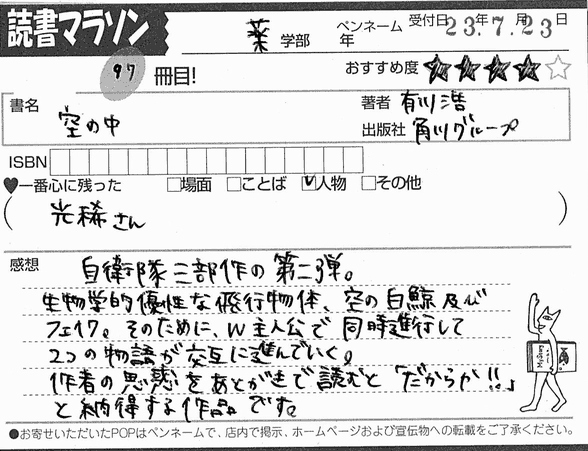 読書マラソン
薬学部 年 ペンネーム 受付日23年7月23日
97冊目! おすすめ度★★★★☆
書名 空の中
著者 有川浩
出版社 角川グループ
ISBN
♥一番心に残った □場面 □ことば ☑人物 □その他
(光稀さん)
感想 自衛隊三部作の第二弾。
生物学的優性な飛行物体、空の白鯨及び
フェイク。そのために、W主人公で同時進行して
2つの物語が交互に進んでいく。
作者の思惑をあとがきまで読むと「だからか!!」
と納得する作品です。
●お寄せいただいたPOPはペンネームで、店内で掲示、ホームページおよび宣伝物への転載をご了承ください。